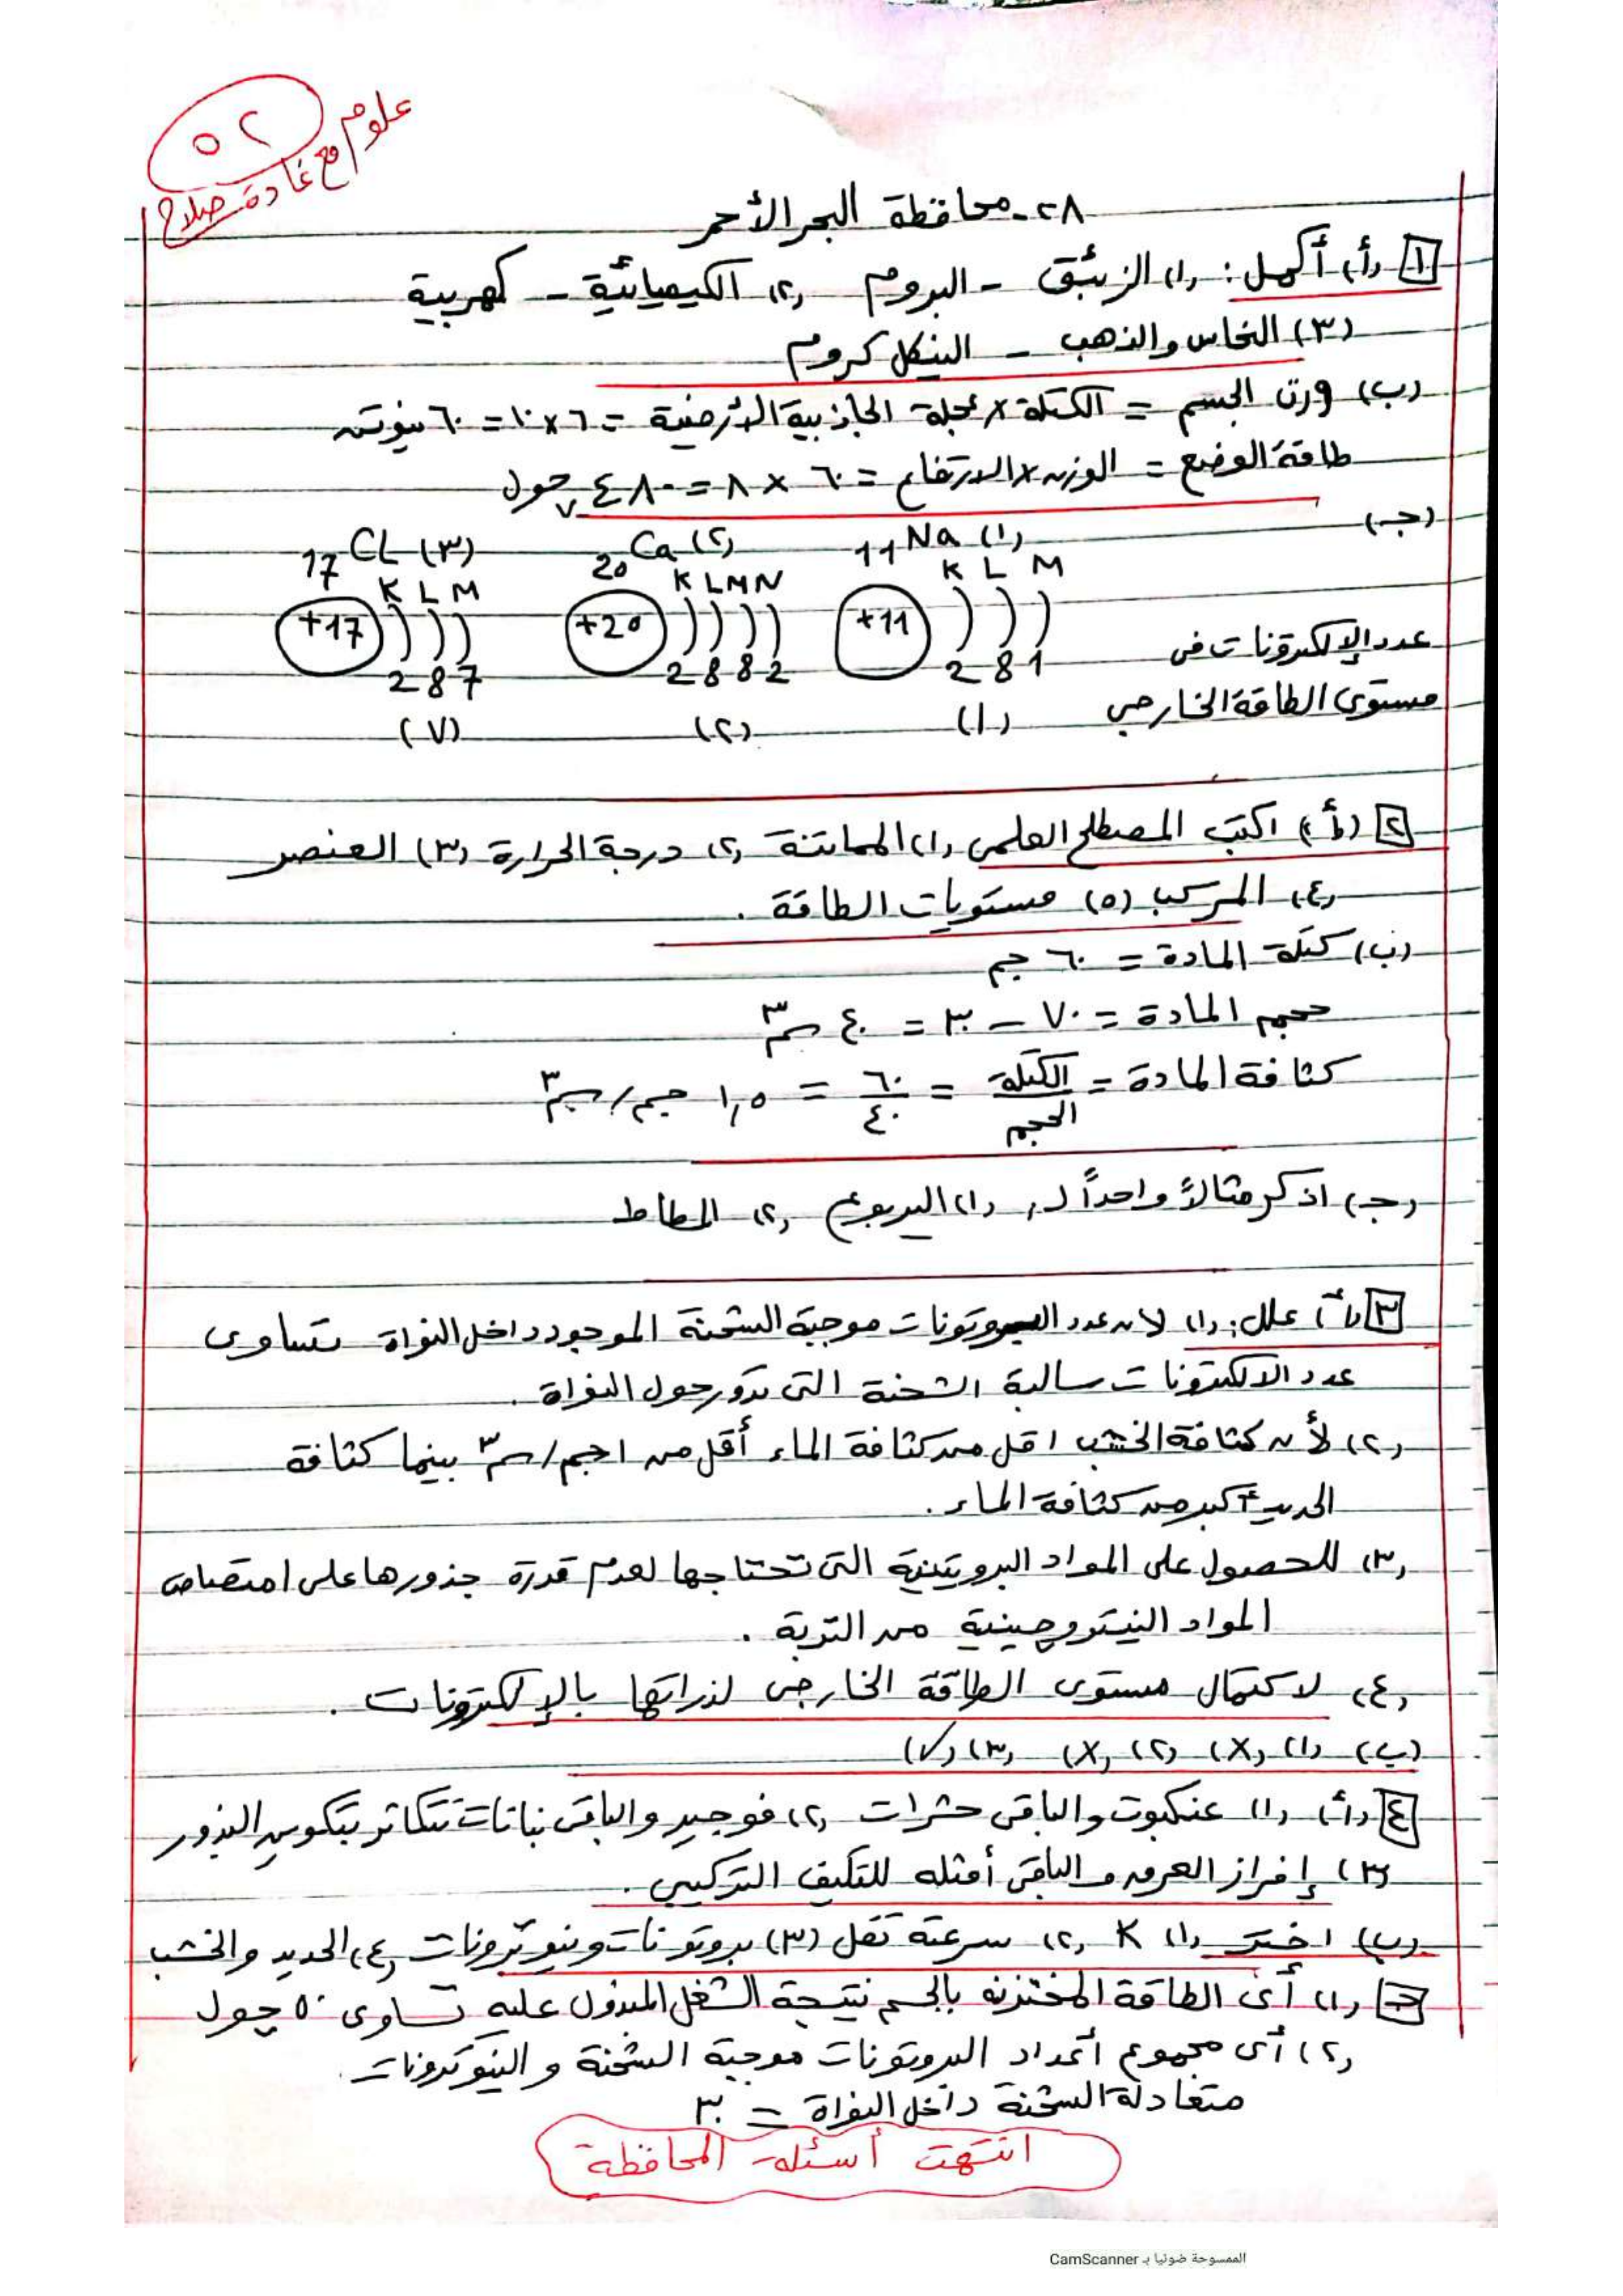 ٥٢
علوم مع غادة صلاح
٢٨- محافظة البحر الأحمر
١ (أ) أكمل: (١) الزئبق - البروم (٢) الكيميائية - كهربية
(٣) النحاس والذهب - النيكل كروم
(ب) وزن الجسم = الكتلة × عجلة الجاذبية الأرضية = ٦ × ١٠ = ٦٠ نيوتن
طاقة الوضع = الوزن × الارتفاع = ٦٠ × ٨ = ٤٨٠ جول
(جـ)
(١) 11Na (٢) 20Ca (٣) 17CL
K L M K L M N K L M
+11 +20 +17
عدد الإلكترونات فى
2 8 1 2 8 8 2 2 8 7
مستوى الطاقة الخارجى (١) (٢) (٧)
٢ (أ) اكتب المصطلح العلمى (١) المماتنة (٢) درجة الحرارة (٣) العنصر
(٤) المركب (٥) مستويات الطاقة .
(ب) كتلة المادة = ٦٠ جم
حجم المادة = ٧٠ - ٣٠ = ٤٠ سم٣
كثافة المادة = الكتلة / الحجم = ٦٠ / ٤٠ = ١,٥ جم/سم٣
(جـ) اذكر مثالاً واحداً لـ, (١) اليربوع (٢) المطاط
٣ (أ) علل: (١) لان عدد البروتونات موجبة الشحنة الموجودد داخل النواة تساوى
عدد الالكترونات سالبة الشحنة التى تدور حول النواة .
(٢) لأن كثافة الخشب اقل من كثافة الماء أقل من ١جم/سم٣ بينما كثافة
الحديد أكبر من كثافة الماء .
(٣) للحصول على المواد البروتينية التى تحتاجها لعدم قدرة جذورها على امتصاص
المواد النيتروچينية من التربة .
(٤) لاكتمال مستوى الطاقة الخارجى لذراتها بالإلكترونات .
(ب) (١) (X) (٢) (X) (٣) (✓)
٤ (أ) (١) عنكبوت والباقى حشرات (٢) فوجير والباقى نباتات تتكاثر بتكوين البذور
(٣) إفراز العرق والباقى أمثله للتكيف التركيبى .
(ب) اختر (١) K (٢) سرعته تقل (٣) بروتونات ونيوترونات (٤) الحديد والخشب
جـ (١) أى الطاقة المختزنه بالجسم نتيجة الشغل المبذول عليه تساوى ٥٠ چول
(٢) أى مجموع أعداد البروتونات موجبة الشحنة و النيوترونات
متعادلة الشحنة داخل النواة = ٣٠
انتهت أسئلة المحافظة
الممسوحة ضوئيا بـ CamScanner